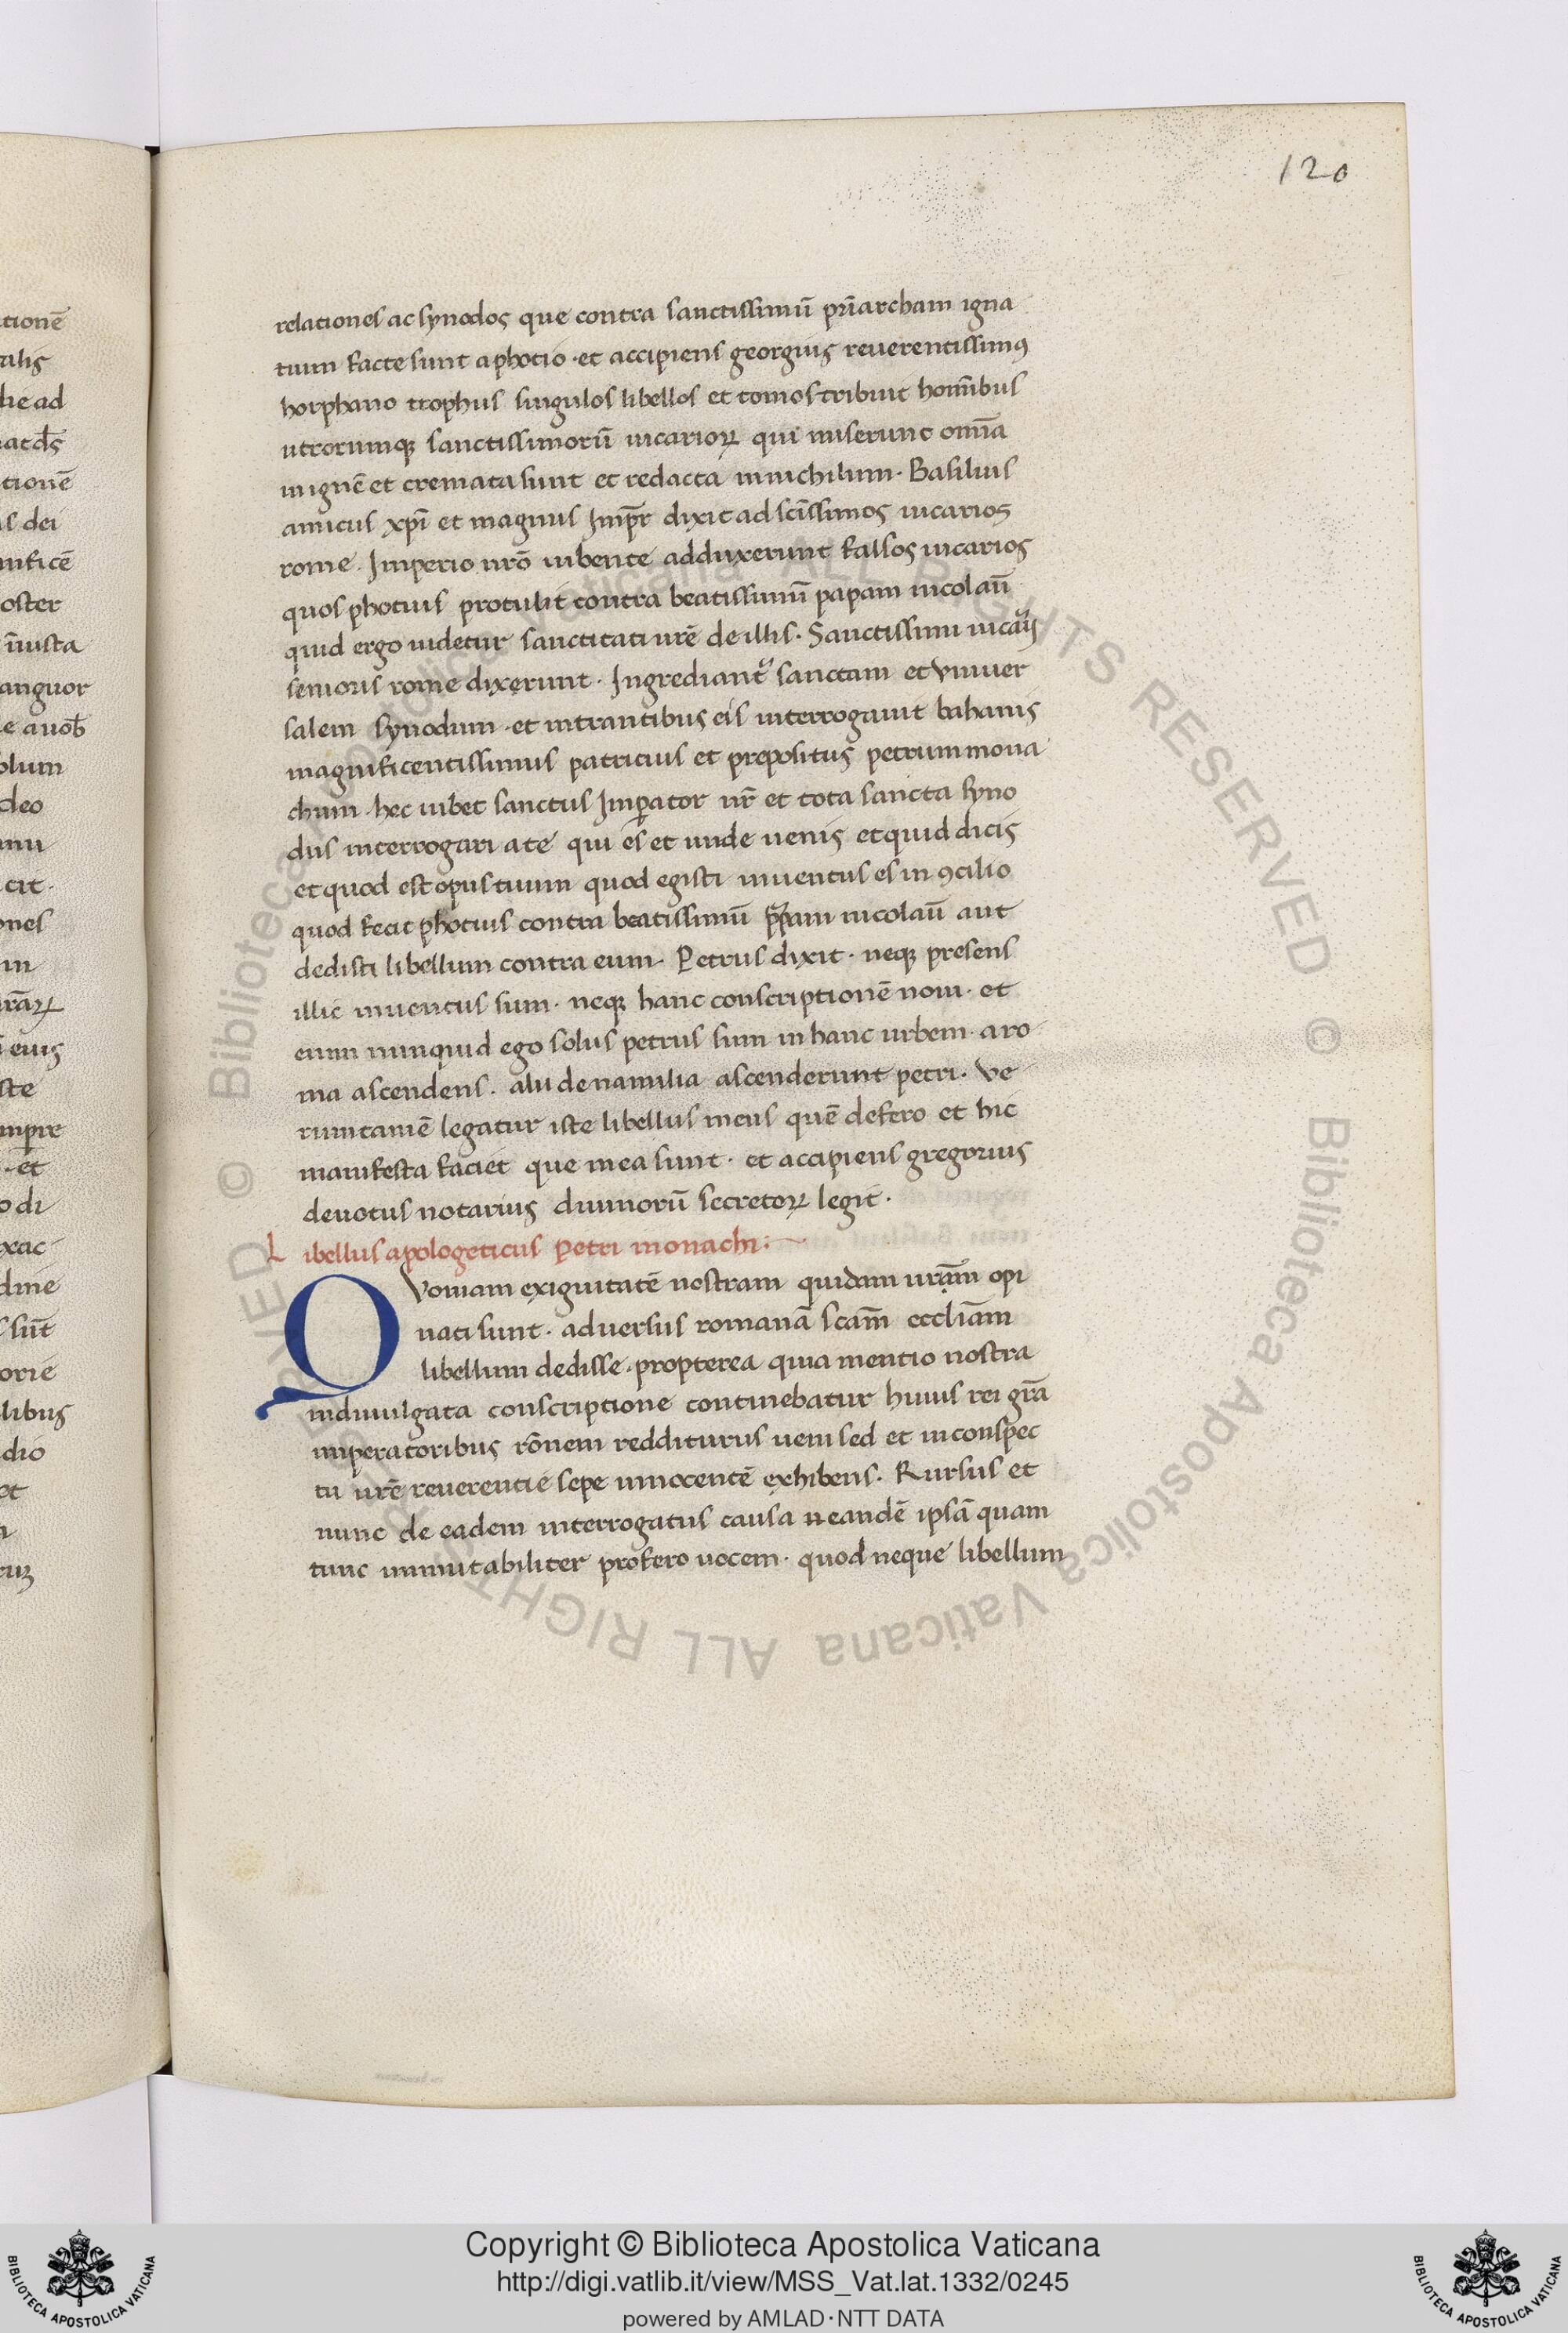 120
relationes ac synodos que contra sanctissimū pr̄iarcham igna
tium facte sunt a photio · et accipiens georgius reuerentissimꝰ
horphano trophus singulos libellos et tomos tribuit hom̄ibus
utrorumqꝫ sanctissimorū uicarioꝝ qui miserunt om̄ia
in ignē et cremata sunt et redacta in nichilum · Basilius
amicus xp̄i et magnus Imp̄r dixit ad sc̄issimos uicarios
rome · Imperio nr̄o iubente adduxerunt falsos uicarios
quos photius protulit contra beatissimū papam nicolaū
quid ergo uidetur sanctitati ur̄e de illis · Sanctissimi uicarij
senioris rome dixerunt · Ingrediantᷣ sanctam et vniuer
salem synodum · et intrantibus eis interrogauit bahanis
magnificentissimus patricius et prepositus petrum mona
chum · hec iubet sanctus Imperator nr̄ et tota sancta syno
dus interrogari a te qui es et unde uenis et quid dicis
et quod est opus tuum quod egisti inuentus es in ꝯcilio
quod fecit photius contra beatissimū papam nicolaū aut
dedisti libellum contra eum · Petrus dixit · neqꝫ presens
illic inuentus sum · neqꝫ hanc conscriptionē noui · et
enim nunquid ego solus petrus sum in hanc urbem · a ro
ma ascendens · alii de namilia ascenderunt petri · Ve
rumtamē legatur iste libellus meus quē defero et hic
manifesta faciet que mea sunt · et accipiens gregorius
deuotus notarius diuinorū secretoꝝ legit ·
Libellus apologeticus Petri monachi :
QVoniam exiguitatē nostram quidam ur̄am opi
nati sunt · aduersus romanā scam̄ eccl̄iam
libellum dedisse · propterea quia mentio nostra
in diuulgata conscriptione continebatur huius rei gr̄a
imperatoribus rōnem redditurus ueni sed et in conspec
tu ur̄e reuerentie sepe innocentē exhibens · Rursus et
nunc de eadem interrogatus causa eandē ipsā quam
tunc immutabiliter profero uocem · quod neque libellum
Copyright © Biblioteca Apostolica Vaticana
http://digi.vatlib.it/view/MSS_Vat.lat.1332/0245
powered by AMLAD·NTT DATA